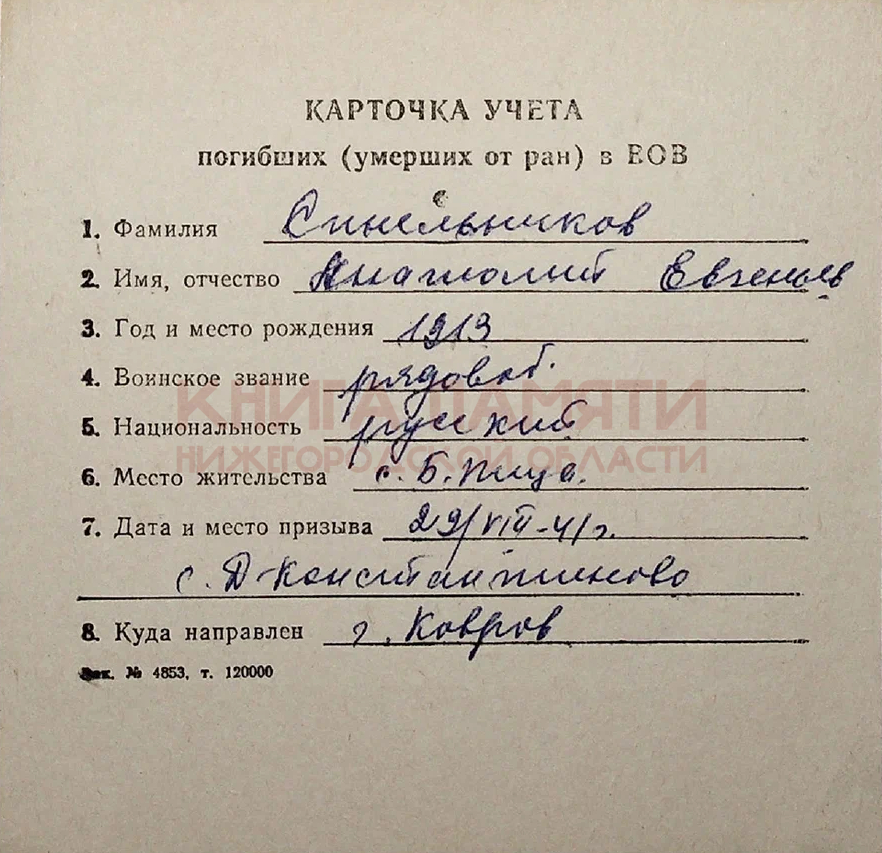 КАРТОЧКА УЧЕТА
погибших (умерших от ран) в ВОВ
1. Фамилия Синельников
2. Имя, отчество Анатолий Евгеньев
3. Год и место рождения 1913
4. Воинское звание рядовой.
КНИГА ПАМЯТИ
5. Национальность русский
НИЖЕГОРОДСКОЙ ОБЛАСТИ
6. Место жительства с. Б. Пица.
7. Дата и место призыва 29/VIII-41г.
с. Д-Константиново
8. Куда направлен г. Ковров
Зак. № 4853, т. 120000